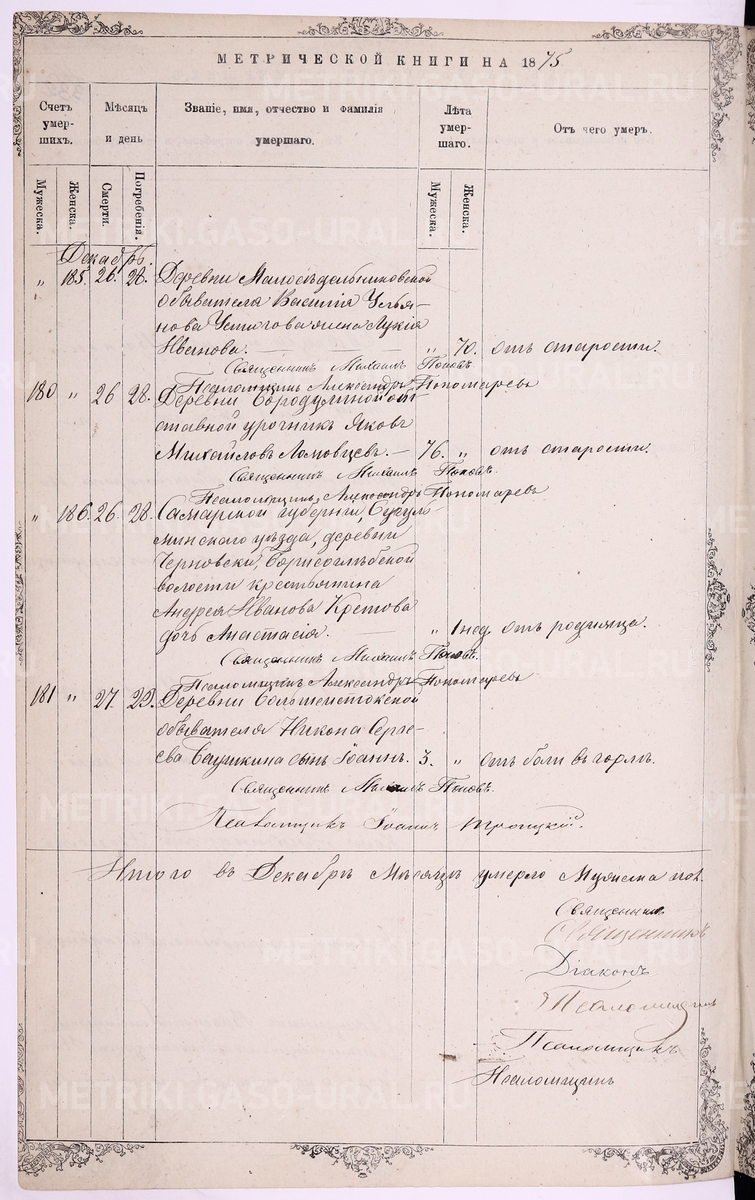 МЕТРИЧЕСКОЙ КНИГИ НА 1875
Счетъ умершихъ.
Мѣсяцъ и день
Званіе, имя, отчество и фамилія умершаго.
Лѣта умершаго.
Отъ чего умеръ.
Мужеска.
Женска.
Смерти.
Погребенія.
Мужеска.
Женска.
Декабрь.
„ 185. 26. 28. Деревни
обывателя Василія Улья-
нова жена Лукія
Иванова. „ 70. отъ старости.
Священникъ Михаилъ Поповъ.
Псаломщикъ Александръ Пономаревъ
180 „ 26 28. Деревни Бородулиной от-
ставной урочникъ Яковъ
Михайловъ Ломовцевъ. 76. „ отъ старости.
Священникъ Михаилъ Поповъ.
Псаломщикъ Александръ Пономаревъ
„ 186. 26. 28. Самарской губерніи, Бугуль-
минскаго уѣзда, деревни
Борисоглѣбской
волости крестьянина
Андрея Иванова Кретова
дочь Анастасія. „ 1 нед. отъ родимца.
Священникъ Михаилъ Поповъ.
Псаломщикъ Александръ Пономаревъ
181 „ 27. 29. Деревни
обывателя Никона Серге-
ева сынъ Іоаннъ. 3. „ отъ боли въ горлѣ.
Священникъ Михаилъ Поповъ.
Псаломщикъ Іоаннъ Троицкій.
Итого въ Декабрѣ Мѣсяцѣ умерло Мужеска пол.
Священникъ
Священникъ
Діаконъ
Псаломщикъ
Псаломщикъ
Псаломщикъ
METRIKI.GASO-URAL.RU